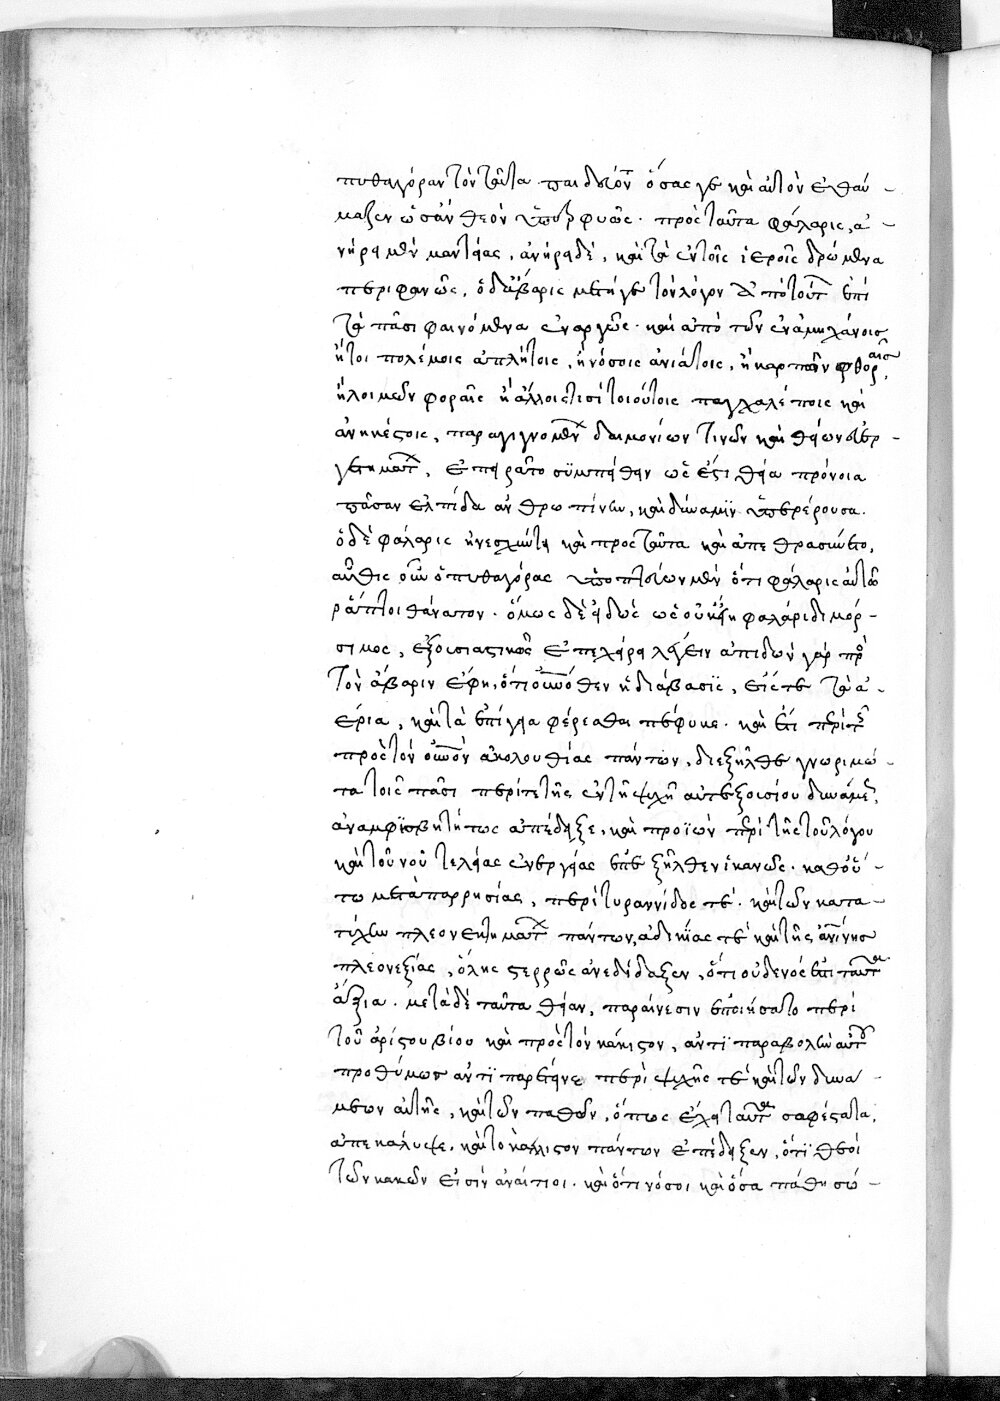 πυθαγόραν τὸν ταῦτα παιδεύοντα ὅσας γε καὶ αὐτὸν ἐθαύ-
μαζεν ὡσὰν θεὸν ὑπερφυῶς. πρὸς ταῦτα φάλαρις, ἀ-
νήρει μὲν μαντείας, ἀνήρει δὲ, καὶ τὰ ἐν τοῖς ἱεροῖς δρώμενα
περιφανῶς. ὁ δ' ἄβαρις μετῆγε τὸν λόγον ἀπὸ τούτων ἐπὶ
τὰ πᾶσι φαινόμενα ἐναργῶς. καὶ ἀπὸ τῶν ἐν ἀμηχάνοις
ἤτοι πολέμοις ἀπλήτοις, ἢ νόσοις ἀνιάτοις, ἢ καρπῶν φθοραῖς,
ἢ λοιμῶν φοραῖς ἢ ἄλλοις τισὶ τοιούτοις παγχαλέποις καὶ
ἀνηκέστοις, παραγιγνομένων δαιμονίων τινῶν καὶ θείων εὐερ-
γετημάτων, ἐπειρᾶτο συμπείθειν ὡς ἔστι θεία πρόνοια
πᾶσαν ἐλπίδα ἀνθρωπίνην, καὶ δύναμιν ὑπερέρουσα.
ὁ δὲ φάλαρις ἠνεσχύντει καὶ πρὸς ταῦτα καὶ ἀπεθρασύνετο,
αὖθις οὖν ὁ πυθαγόρας ὑποπτεύων μὲν ὅτι φάλαρις αὐτῶ
ῥάπτοι θάνατον. ὅμως δὲ εἰδὼς ὡς οὐκ εἴη φαλάριδι μόρ-
σιμος, ἐξουσιαστικῶς ἐπεχείρει λέγειν ἀπιδὼν γὰρ πρὸς
τὸν ἄβαριν ἔφη, ὅτι οὐρανόθεν ἡ διάβασις, εἴς τε τὰ ἀ-
έρια, καὶ τὰ ἐπίγεια φέρεσθαι πέφυκε. καὶ ἔτι περὶ τῆς
πρὸς τὸν οὐρανὸν ἀκολουθίας πάντων, διεξῆλθε γνωριμώ-
τατα τοῖς πᾶσι περί τε τῆς ἐν τῇ ψυχῇ αὐτεξουσίου δυνάμεως,
ἀναμφισβητήτως ἀπέδειξε, καὶ προϊὼν περὶ τῆς τοῦ λόγου
καὶ τοῦ νοῦ τελείας ἐνεργείας ἐπεξῆλθεν ἱκανῶς. καθ' οὕ-
τω μετὰ παρρησίας, περὶ τυραννίδος τε. καὶ τῶν κατὰ
τύχην πλεονεκτημάτων πάντων, ἀδικίας τε καὶ τῆς ἀνθρωπίνης
πλεονεξίας, ὅλης στερρῶς ἀνεδίδαξεν, ὅτι οὐδενός ἐστι ταῦτα
ἄξια. μετὰ δὲ ταῦτα θείαν, παραίνεσιν ἐποιήσατο περὶ
τοῦ ἀρίστου βίου καὶ πρὸς τὸν κάκιστον, ἀντιπαραβολὴν αὐτοῦ
προθύμως ἀντιπαρέτεινε περὶ ψυχῆς τε καὶ τῶν δυνά-
μεων αὐτῆς, καὶ τῶν παθῶν, ὅπως ἔχει ταῦτα σαφέστατα,
ἀπεκάλυψε, καὶ τὸ κάλλιστον πάντων ἐπέδειξεν, ὅτι θεοὶ
τῶν κακῶν εἰσὶν ἀναίτιοι. καὶ ὅτι νόσοι καὶ ὅσα πάθη σώ-